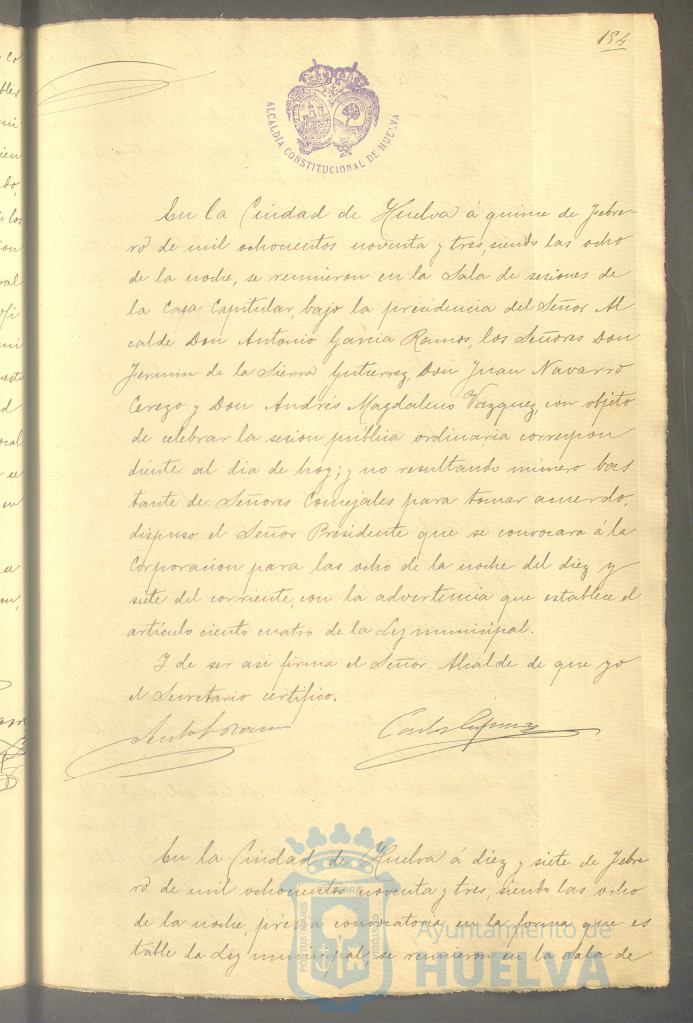 154
ALCALDÍA CONSTITUCIONAL DE HUELVA
En la Ciudad de Huelva á quince de Febre-
ro de mil ochocientos noventa y tres, siendo las ocho
de la noche, se reunieron en la Sala de sesiones de
la Casa Capitular, bajo la presidencia del Señor Al
calde Don Antonio Garcia Ramos, los Señores Don
Fermin de la Sierra Gutierrez, Don Juan Navarro
Cerezo y Don Andrés Magdaleno Vazquez, con objeto
de celebrar la sesion pública ordinaria correspon
diente al dia de hoy; y no resultando número bas
tante de Señores Concejales para tomar acuerdo,
dispuso el Señor Presidente que se convocara á la
Corporacion para las ocho de la noche del diez y
siete del corriente, con la advertencia que establece el
artículo ciento cuatro de la Ley municipal.
Y de ser asi firma el Señor Alcalde de que yo
el Secretario certifico.
En la Ciudad de Huelva á diez y siete de Febre
ro de mil ochocientos noventa y tres, siendo las ocho
de la noche, prévia convocatoria en la forma que es
table la Ley municipal, se reunieron en la sala de
PORTUS MARIS
Ayuntamiento de
HUELVA